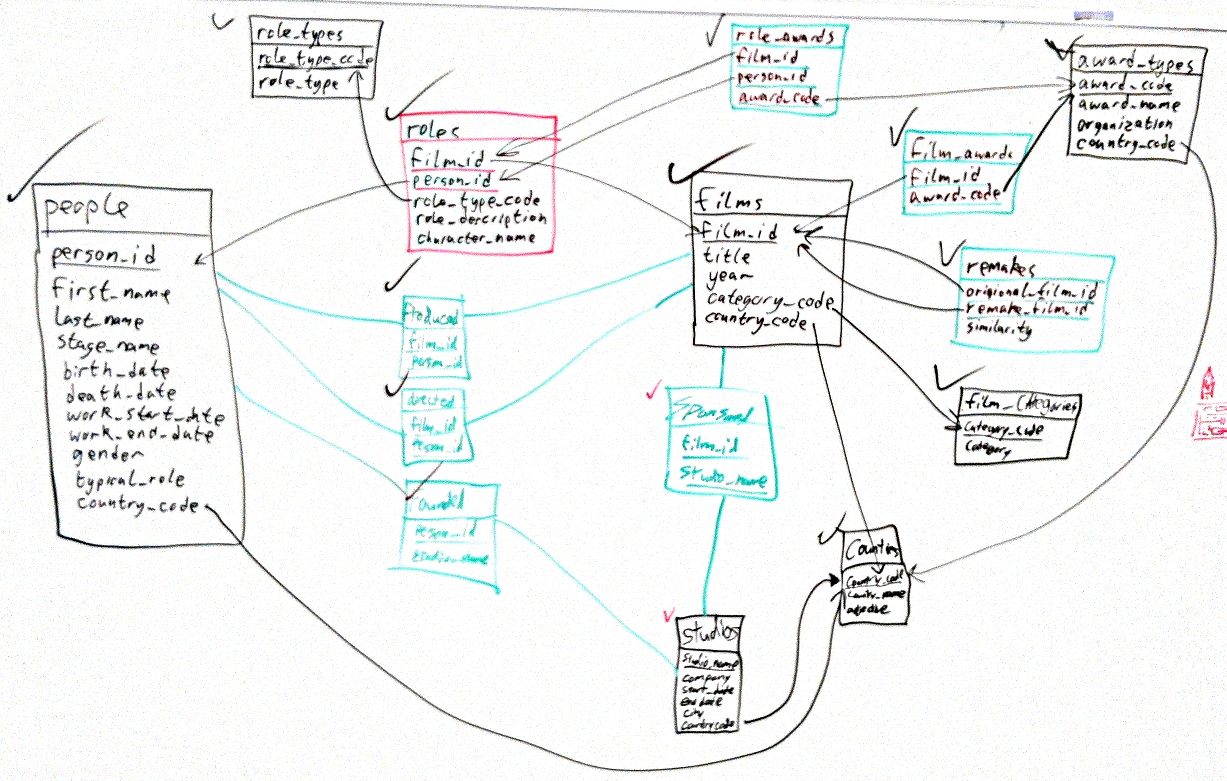 role_types
role_type_code
role_type
role_awards
film_id
person_id
award_code
award_types
award_code
award_name
organization
country_code
roles
film_id
person_id
role_type_code
role_description
character_name
film_awards
film_id
award_code
people
person_id
first_name
last_name
stage_name
birth_date
death_date
work_start_date
work_end_date
gender
typical_role
country_code
films
film_id
title
year
category_code
country_code
remakes
origional_film_id
remake_film_id
similarity
produced
film_id
person_id
directed
film_id
person_id
sponsored
film_id
studio_name
film_categories
category_code
category
founded
person_id
studio_name
countries
country_code
country_name
studios
studio_name
company
start_date
end date
city
country code